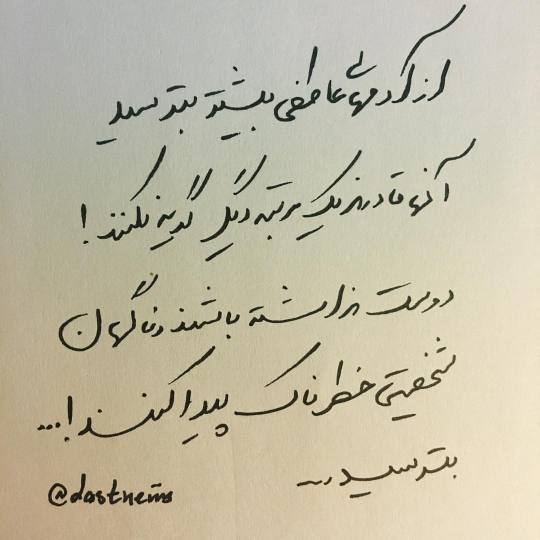 از آدمهای عاطفی بیشتر بترسید
آنها قادرند یک مرتبه دیگر گریه نکنند!
دوست نداشته باشند و ناگهان
شخصیتی خطرناک پیدا کنند!...
بترسید...
@dastnems